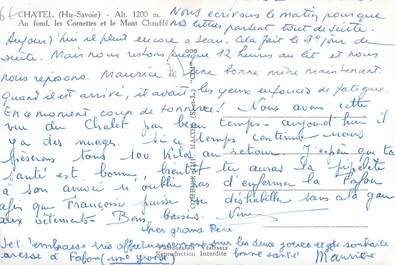 CHATEL (Hte-Savoie) - Alt. 1200 m.
Au fond, les Cornettes et le Mont Chauffé
Nous écrivons le matin pour que
nos lettres partent tout de suite.
Aujourd'hui il pleut encore à seau. Cela fait le 3e jour de
suite. Mais nous restons presque 12 heures au lit et nous
nous reposons. Maurice a une bonne mine maintenant.
Quand il est arrivé, il avait les yeux enfoncés de fatigue.
En ce moment coup de tonnerre! Nous avons cette
vue du Chalet par beau temps - aujourd'hui il
y a des nuages. Si ce temps continue nous
pèserons tous 100 Kilos au retour. J'espère que ta
santé est bonne, bientôt tu auras la
à son arrivée n'oublie pas d'enfermer la Fafou
afin que Françoise puisse se déshabiller sans
aux vêtements. Bons baisers.
cher grand Père
Je t'embrasse très affectueusement sur les deux joues et je souhaite
caresse à Fafou (une grosse) bonne santé Maurice
Reproduction Interdite